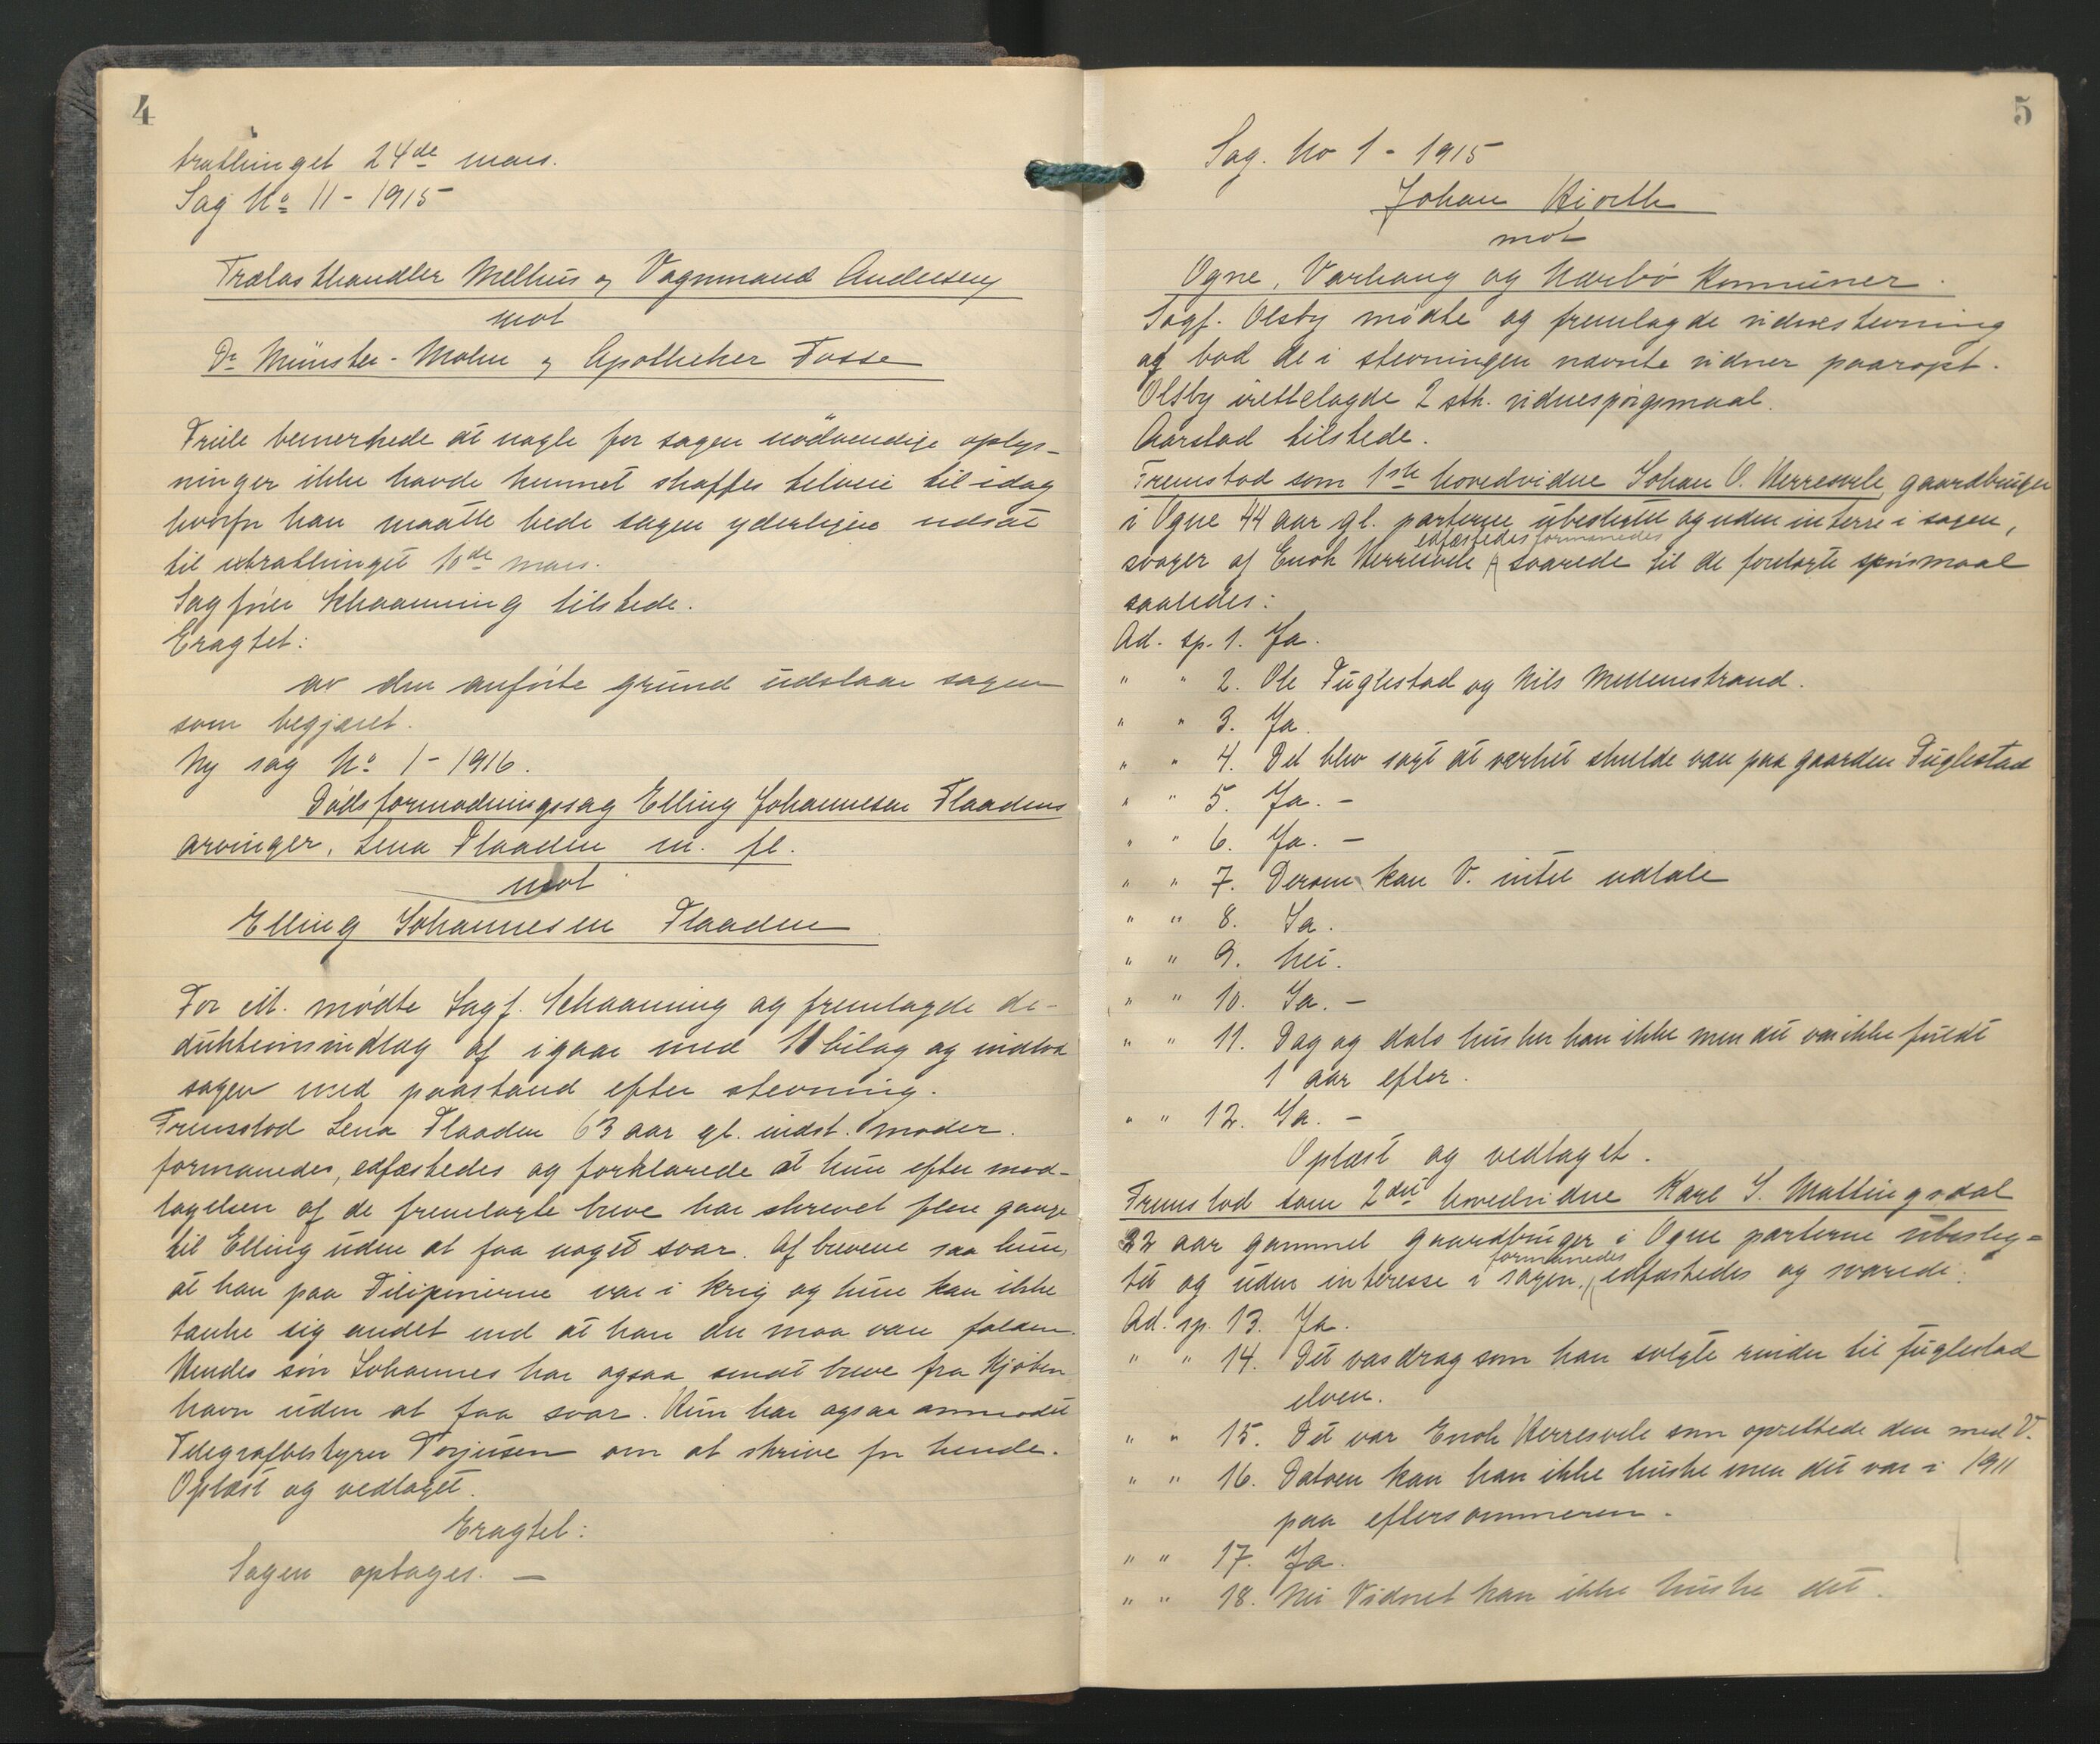 4
tratlinget 24de mars.
Sag No 11 - 1915
Trælasthandler Melhus og Vognmand Andersen
mot
Dr Münster-Mohn og Apotheker Fasse
Friele bemerkede at nogle for sagen nödvendige oplys-
ninger ikke havde kunnet skaffes tilveie til idag
hvorfor han maatte bede sagen yderligere udsat
til extratinget 10de mars.
Sagfører Schaanning tilstede.
Eragtet:
av den anførte grund udstaar sagen
som begjæret.
Ny sag No 1 - 1916.
Dødsformodningssag Elling Johannesen Flaadens
arvinger, Lena Flaaden m. fl.
mot
Elling Johannesen Flaaden
For cit. mødte Sagf. Schaanning og fremlagde de-
duktionsindlæg af igaar med 11 bilag og indlod
sagen med paastand efter stevning.
Fremstod Lena Flaaden 63 aar gl. indst. moder.
formanedes, edfæstedes og forklarede at hun efter mod-
tagelsen af de fremlagte breve har skrevet flere gange
til Elling uden at faa noget svar. Af brevene saa hun,
at han paa Filipinierne var i krig og hun kan ikke
tænke sig andet end at han der maa være falden.
Hendes søn Johannes har ogsaa sendt breve fra Kjøben
havn uden at faa svar. Hun har ogsaa anmodet
Telegrafbestyrer Torjusen om at skrive for hende.
Oplæst og vedtaget.
Eragtet:
Sagen optages. —
5
Sag. No 1 - 1915
Johan Hiorth
mot
Ogne, Varhaug og Nærbø Kommuner.
Sagf. Olsby mødte og fremlagde vidnestevning
og bad de i stevningen nævnte vidner paaropt.
Olsby irettelagde 2 sth. vidnespørgsmaal.
Aarstad tilstede.
Fremstod som 1ste hovedvidne Johan O. Herresvele, gaardbruger
i Ogne 44 aar gl. parterne ubeslegtet og uden interre i sagen,
edfæstedes formanedes
svoger af Enok Herresvele svarede til de forelagte spørsmaal
saaledes:
Ad. sp. 1. Ja.
" " 2. Ole Fuglestad og Nils Mellemstrand.
" " 3. Ja.
" " 4. Det blev sagt at verket skulde være paa gaarden Fuglestad
" " 5. Ja. —
" " 6. Ja. —
" " 7. Derom kan V. intet udtale
" " 8. Ja.
" " 9. Nei.
" " 10. Ja. —
" " 11. Dag og dato husker han ikke men det var ikke fuldt
1 aar efter.
" " 12. Ja. —
Oplæst og vedtaget.
Fremstod som 2det hovedvidne Karl S. Mattingsdal
32 aar gammel gaardbruger i Ogne parterne ubesleg-
formanedes
tet og uden interesse i sagen, edfæstedes og svarede:
Ad. sp. 13. Ja.
" " 14. Det vasdrag som han solgte rinder til Fuglestad
elven.
" " 15. Det var Enok Herresvele som oprettede den med V.
" " 16. Datoen kan han ikke huske men det var i 1911
paa eftersommeren.
" " 17. Ja.
" " 18. Nei Vidnet kan ikke huske det.